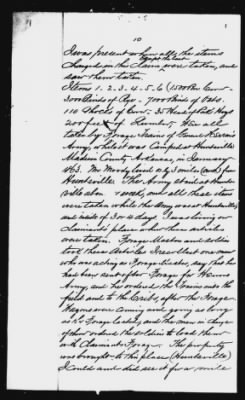 10
I was present when all the items
charged in this claim except the last were taken, and
saw them taken.
Items 1. 2. 3. 4. 5. 6 (1500 Bu Corn
3000 Binds of Rye. 7000 Binds of Oats.
110 Shocks of Corn. 35 Head of Hogs
200 feet of Lumber. Were all
taken by Forage Trains of Genl Herron's
Army, whilst it was Camped at Huntsville
Madison County Arkansas, in January
1863. Mr Moody lived 2½ miles from
Huntsville. The Army staid at Hunts-
ville about week, and all these items
were taken while the Army was at Huntsville
and inside of 3 or 4 days. I was living on
Claimant's place when these articles
were taken. Forage Master and soldiers
took these articles. I heard but one man
who was acting as Forage Master, say that he
had been sent after Forage for Herron's
Army, and he ordered the Trains into the
field and to the Cribs, after the Forage
Wagons were coming and going as long
as his Forage lasted, and the men in charge
of them ordered the soldiers to load them
with Claimant's Forage. This property
was brought to this place (Huntsville)
I could and did see it for a mile